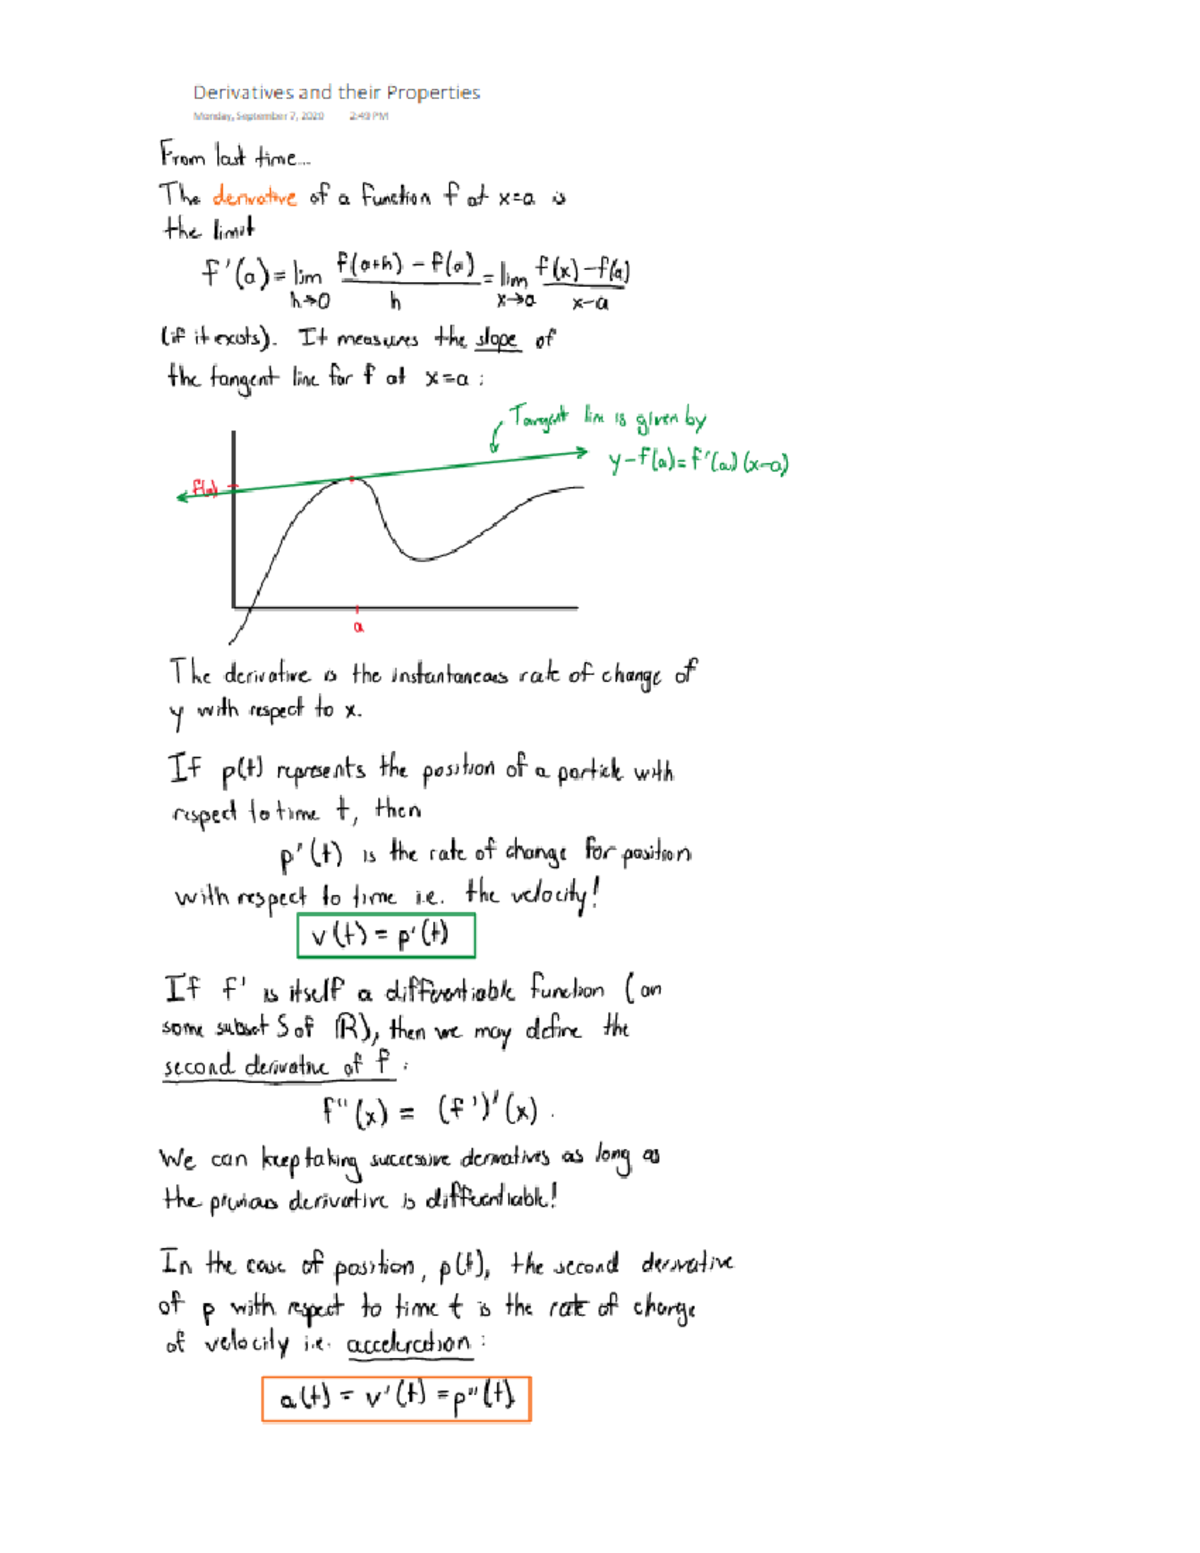 Derivatives and their Properties
Monday, September 7, 2020 2:49 PM
From last time...
The derivative of a function f at x=a is
the limit
f'(a) = lim h→0 (f(a+h) - f(a))/h = lim x→a (f(x)-f(a))/(x-a)
(if it exists). It measures the slope of
the tangent line for f at x=a :
Tangent line is given by
y-f(a)=f'(a)(x-a)
f(a)
a
The derivative is the instantaneous rate of change of
y with respect to x.
If p(t) represents the position of a particle with
respect to time t, then
p'(t) is the rate of change for position
with respect to time i.e. the velocity!
v(t) = p'(t)
If f' is itself a differentiable function (on
some subset S of ℝ), then we may define the
second derivative of f :
f''(x) = (f')'(x).
We can keep taking successive derivatives as long as
the previous derivative is differentiable!
In the case of position, p(t), the second derivative
of p with respect to time t is the rate of change
of velocity i.e. acceleration :
a(t) = v'(t) = p''(t).